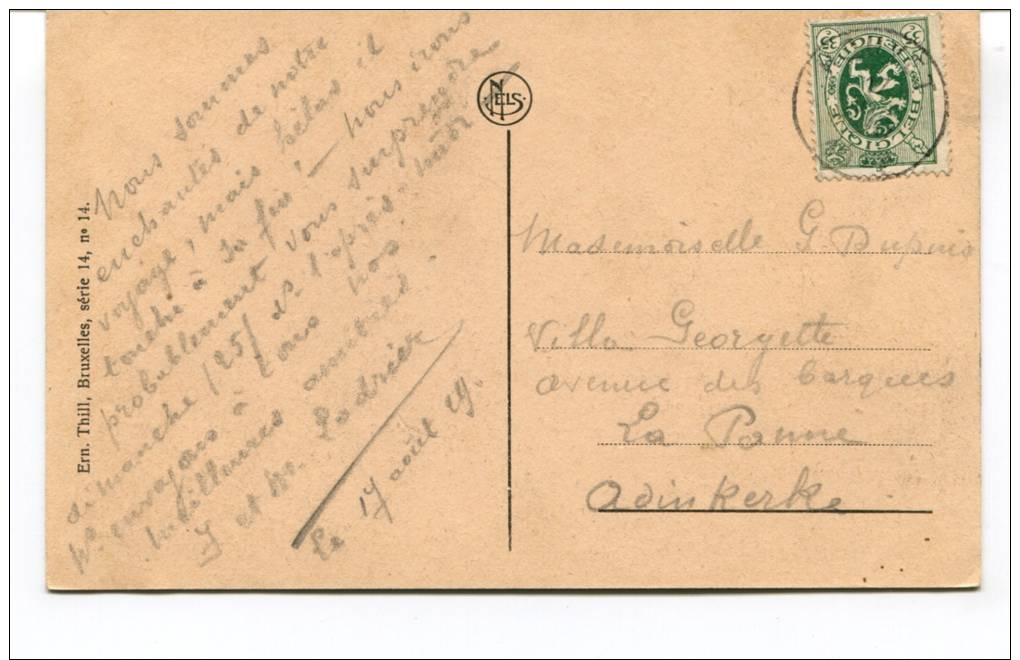 Nous sommes
enchantés de notre
voyage, mais hélas il
touche à sa fin! nous irons
probablement vous surprendre
dimanche /25/ ds l'après midi
Ns. envoyons à tous nos
meilleures amitiés.
J et M. Ladrière
Le 17 août 29.
Ern. Thill, Bruxelles, série 14, nº 14.
NELS
BELGIQUE
BELGIE
35
Mademoiselle G. Dupuis
Villa Georgette
avenue des barques
La Panne
Adinkerke